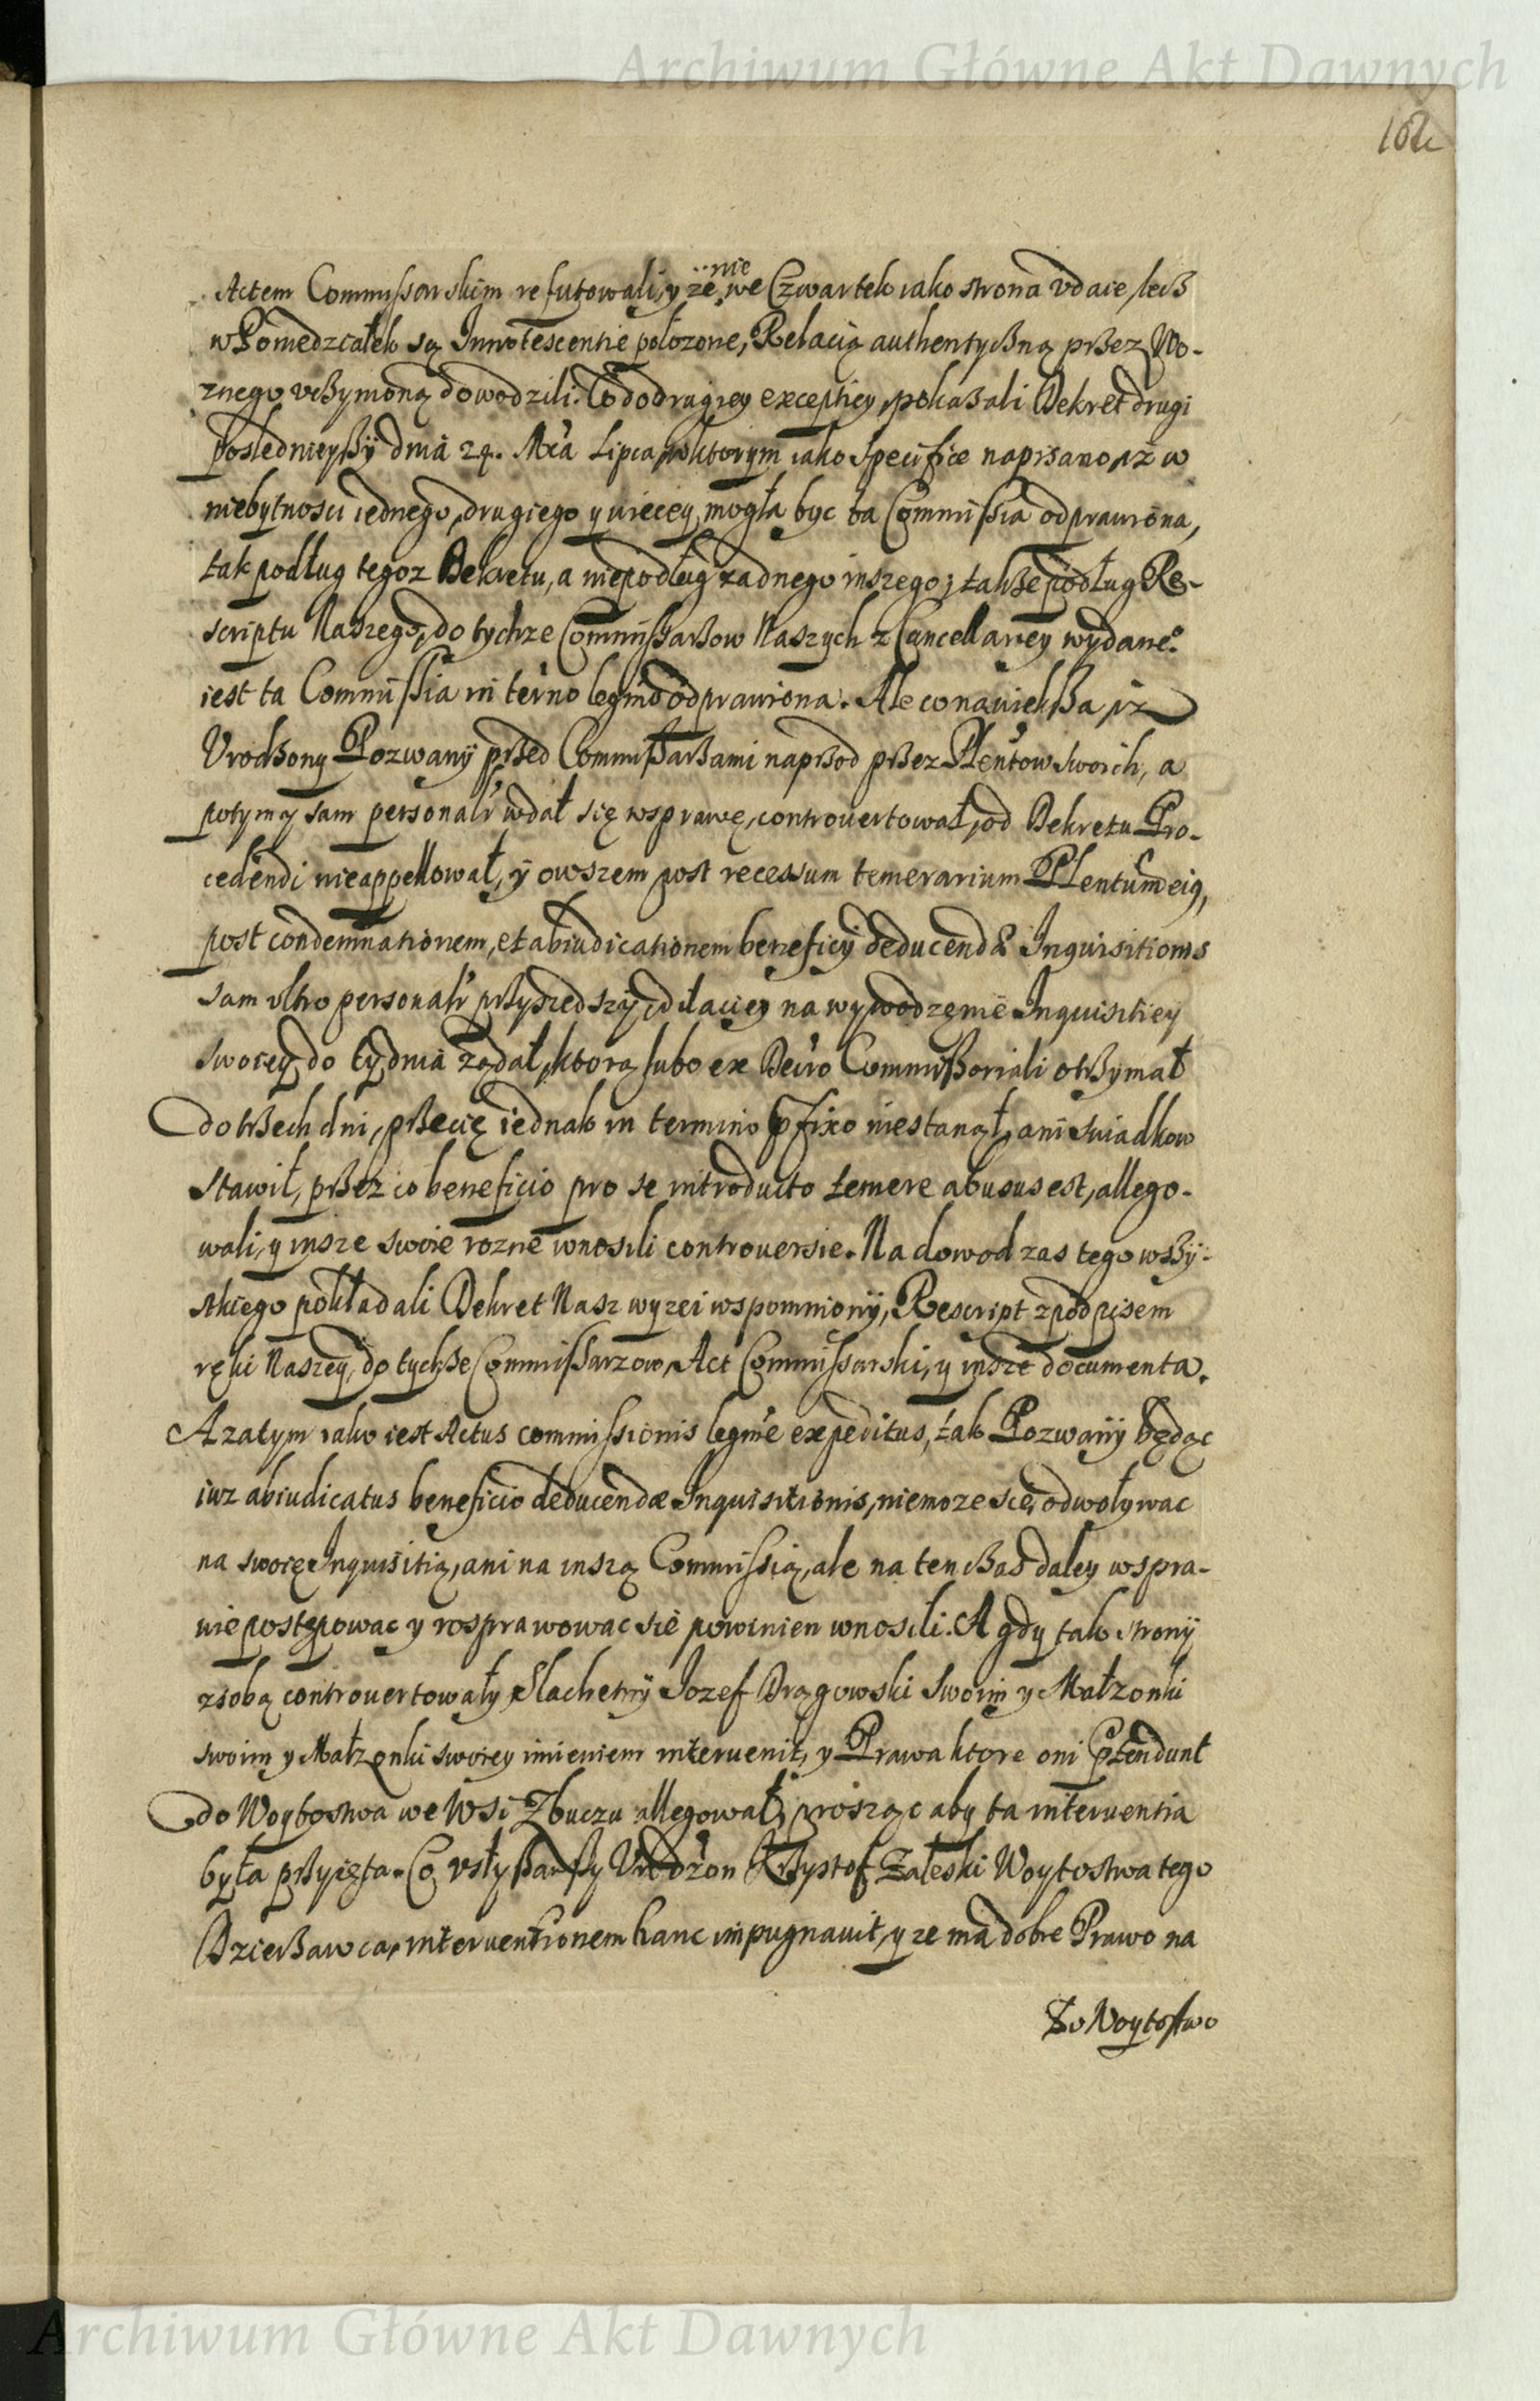 Archiwum Główne Akt Dawnych
162
Actem Commissarskim refutowali, y że nie we Czwartek iako strona vdaie, lecz
w Poniedziałek są Innotescentie położone, Relacią authentyczną przez Wo-
znego vczynioną dowodzili. Co do drugiey exceptiey, pokazali Dekret drugi
poslednieyszy dnia 24. Mca Lipca, w ktorym iako specifice napisano, iż w
niebytnosci iednego, drugiego y więcey, mogła byc ta Commissia odprawiona,
tak podług tegoz Dekretu, a nie podług żadnego inszego; także podług Re-
scriptu Naszego, do tychże Commissarzow Naszych z Cancellariey wydane°
iest ta Commissia in termo legitmo odprawiona. Ale co nawieksza, iż
Vrodzony Pozwany przed Commissarzami naprzod przez Plentow swoich, a
potym y sam personalr wdał się w sprawę, controuertował, od Dekretu Pro-
cedendi nie appellował, y owszem post recessum temerarium Plentum eiq,
post condemnationem, et abiudicationem beneficij deducendæ Inquisitionis
sam vltro personalr przyszedszy, dilaciey na wywodzęnie Inquisitiey
swoiey do tydnia żądał, ktorą lubo ex Decro Commissoriali otrzymał
do trzech dni, przecię iednak in termino pfixo nie stanął, ani swiadkow
stawił, przez co beneficio pro se introducto temere abusus est, allego-
wali, y insze swoie rozne wnosili controuersie. Na dowod zas tego wszy-
stkiego pokładali Dekret Nasz wyzei wspomniony, Rescript z podpisem
ręki Naszey, do tychże Commissarzow, Act Commissarski, y insze documenta.
A zatym iako iest Actus commissionis legitme expeditus, tak Pozwany będąc
iuz abiudicatus beneficio deducendæ Inquisitionis, niemoze się odwoływac
na swoię Inquisitią, ani na inszą Commissią, ale na ten czas daley w spra-
wie postępowac y rosprawowac się powinien wnosili. A gdy tak strony
z sobą controuertowały, Slachetny Jozef Drągowski swoim y Małzonki
swoim y Małzonki swoiey imieniem interuenit, y Prawa ktore oni ptendunt
do Woytostwa we Wsi Zbuczu allegował, prosząc aby ta interuentia
była przyięta. Co vsłyszawszy Vrodzon Krzysztof Zaleski Woytostwa tego
Dzierzawca, interuentionem hanc impugnauit, y ze ma dobre Prawo na
To Woytostwo
Archiwum Główne Akt Dawnych